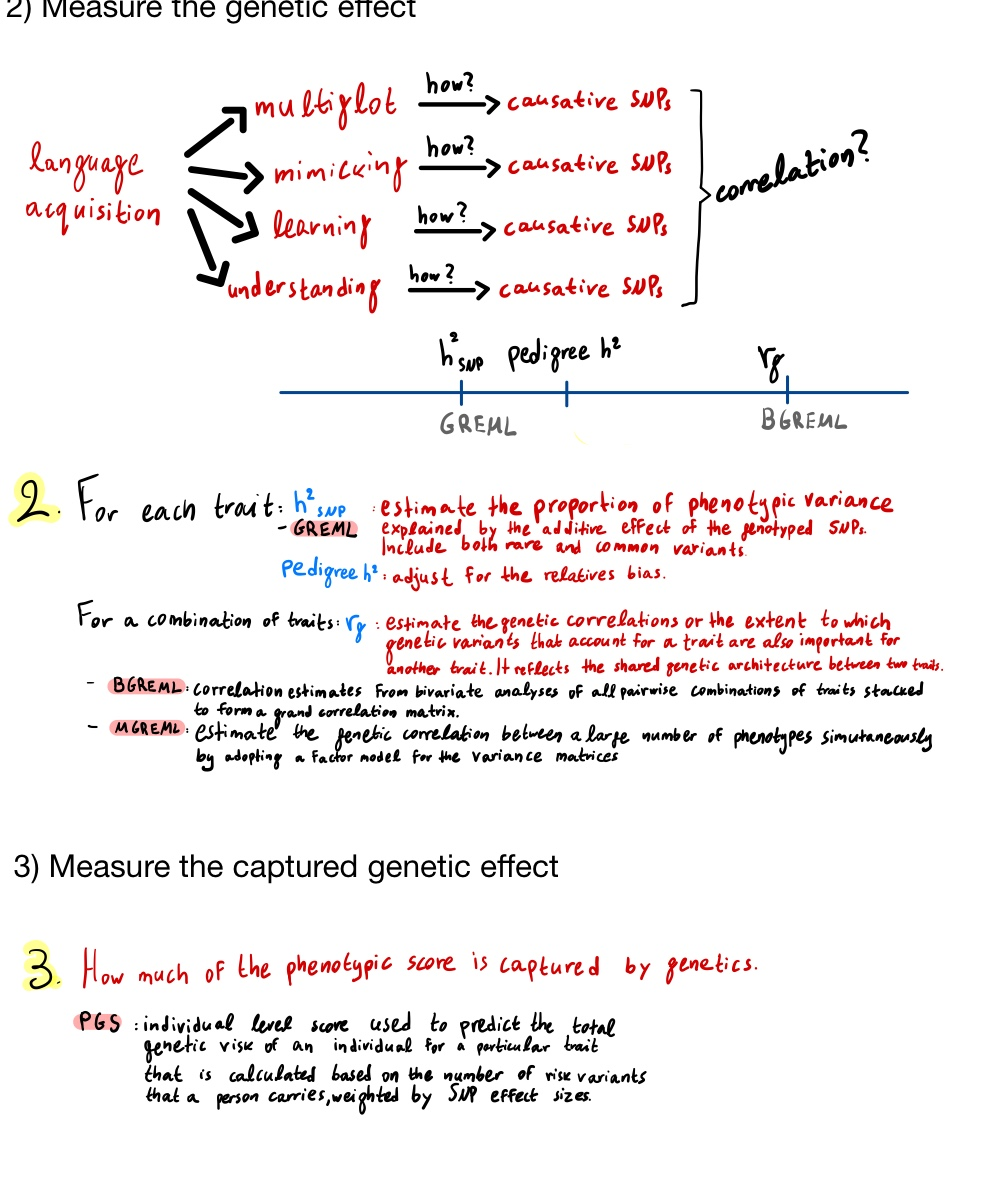 2) Measure the genetic effect
language
acquisition
multiglot how? causative SNPs
mimicking how? causative SNPs
learning how? causative SNPs
understanding how? causative SNPs
correlation?
h²SNP pedigree h² rg
GREML BGREML
2. For each trait: h²SNP : estimate the proportion of phenotypic variance
- GREML explained by the additive effect of the genotyped SNPs.
Include both rare and common variants.
Pedigree h²: adjust for the relatives bias.
For a combination of traits: rg : estimate the genetic correlations or the extent to which
genetic variants that account for a trait are also important for
another trait. It reflects the shared genetic architecture between two traits.
- BGREML: correlation estimates from bivariate analyses of all pairwise combinations of traits stacked
to form a grand correlation matrix.
- MGREML: estimate the genetic correlation between a large number of phenotypes simutaneously
by adopting a factor model for the variance matrices
3) Measure the captured genetic effect
3. How much of the phenotypic score is captured by genetics.
PGS : individual level score used to predict the total
genetic risk of an individual for a particular trait
that is calculated based on the number of risk variants
that a person carries, weighted by SNP effect sizes.